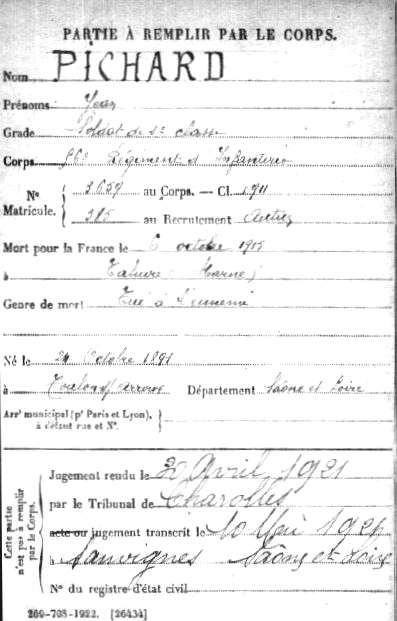 PARTIE À REMPLIR PAR LE CORPS.
Nom PICHARD
Prénoms Jean
Grade Soldat de 2e classe
Corps 56e Régiment d'Infanterie
N° Matricule. { 3659 au Corps. — Cl. 1911
315 au Recrutement Autun
Mort pour la France le 6 octobre 1915
à Tahure (Marne)
Genre de mort Tué à l'ennemi
Né le 24 Octobre 1891
à Toulon s/ Arroux Département Saône et Loire
Arr' municipal (p' Paris et Lyon), à défaut rue et N°.
Cette partie n'est pas à remplir par le Corps.
Jugement rendu le 30 Avril 1921
par le Tribunal de Charolles
acte ou jugement transcrit le 10 Mai 1921
à Sanvignes Saône et Loire
N° du registre d'état civil
269-708-1922. [26434]